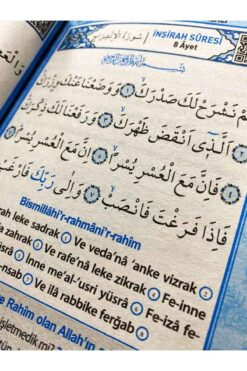 İNŞİRAH SÛRESİ
8 Âyet
نَشْرَحْ لَكَ صَدْرَكَۙ ﴿١﴾ وَوَضَعْنَا عَنْكَ وِزْرَكَۙ
اَلَّذٓي اَنْقَضَ ظَهْرَكَۙ ﴿٣﴾ وَرَفَعْنَا لَكَ ذِكْرَكَۜ
فَاِنَّ مَعَ الْعُسْرِ يُسْرًاۙ ﴿٥﴾ اِنَّ مَعَ الْعُسْرِ يُسْرًاۜ
فَاِذَا فَرَغْتَ فَانْصَبْۙ ﴿٧﴾ وَاِلٰى رَبِّكَ فَارْغَبْ
Bismillâhi'r-rahmâni'r-rahîm
leke sadrak ① Ve veda'nâ 'anke vizrak ②
zahrak ③ Ve rafe'nâ leke zikrak ④ Fe-inne
⑤ İnne me'al-'usri yüsrâ ⑥ Fe-izâ fe-
-nsab ⑦ Ve ilâ rabbike ferğab ⑧
Rahim olan Allah'ın